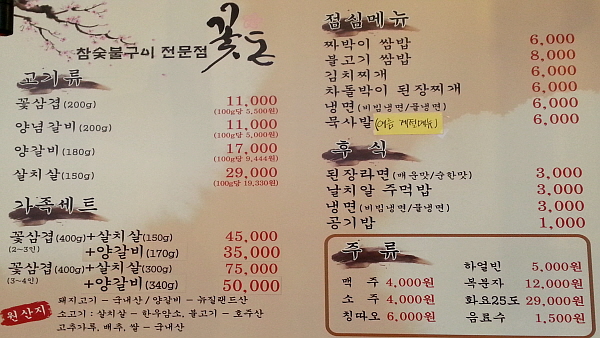 참숯불구이 전문점 꽃돈
고기류
꽃삼겹(200g) 11,000
(100g당 5,500원)
양념갈비(200g) 11,000
(100g당 5,000원)
양갈비(180g) 17,000
(100g당 9,444원)
살치살(150g) 29,000
(100g당 19,330원)
가족세트
꽃삼겹(400g)+살치살(150g) 45,000
(2~3인) +양갈비(170g) 35,000
꽃삼겹(400g)+살치살(300g) 75,000
(3~4인) +양갈비(340g) 50,000
원산지
돼지고기 – 국내산 / 양갈비 – 뉴질랜드산
소고기 : 살치살 – 한우암소, 불고기 – 호주산
고추가루, 배추, 쌀 – 국내산
점심메뉴
짜박이 쌈밥 6,000
불고기 쌈밥 8,000
김치찌개 6,000
차돌박이 된장찌개 6,000
냉면(비빔냉면/물냉면) 6,000
묵사발(여름 계절메뉴) 6,000
후식
된장라면(매운맛/순한맛) 3,000
날치알 주먹밥 3,000
냉면(비빔냉면/물냉면) 3,000
공기밥 1,000
주류
맥주 4,000원
소주 4,000원
칭따오 6,000원
하얼빈 5,000원
복분자 12,000원
화요25도 29,000원
음료수 1,500원